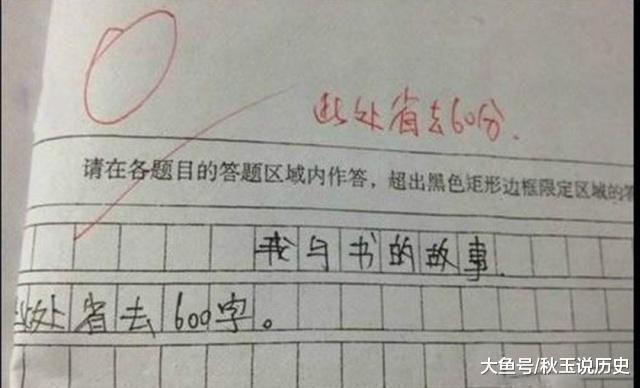 0
此处省去60分.
请在各题目的答题区域内作答，超出黑色矩形边框限定区域的答
我与书的故事.
此处省去600字。
大鱼号/秋玉说历史